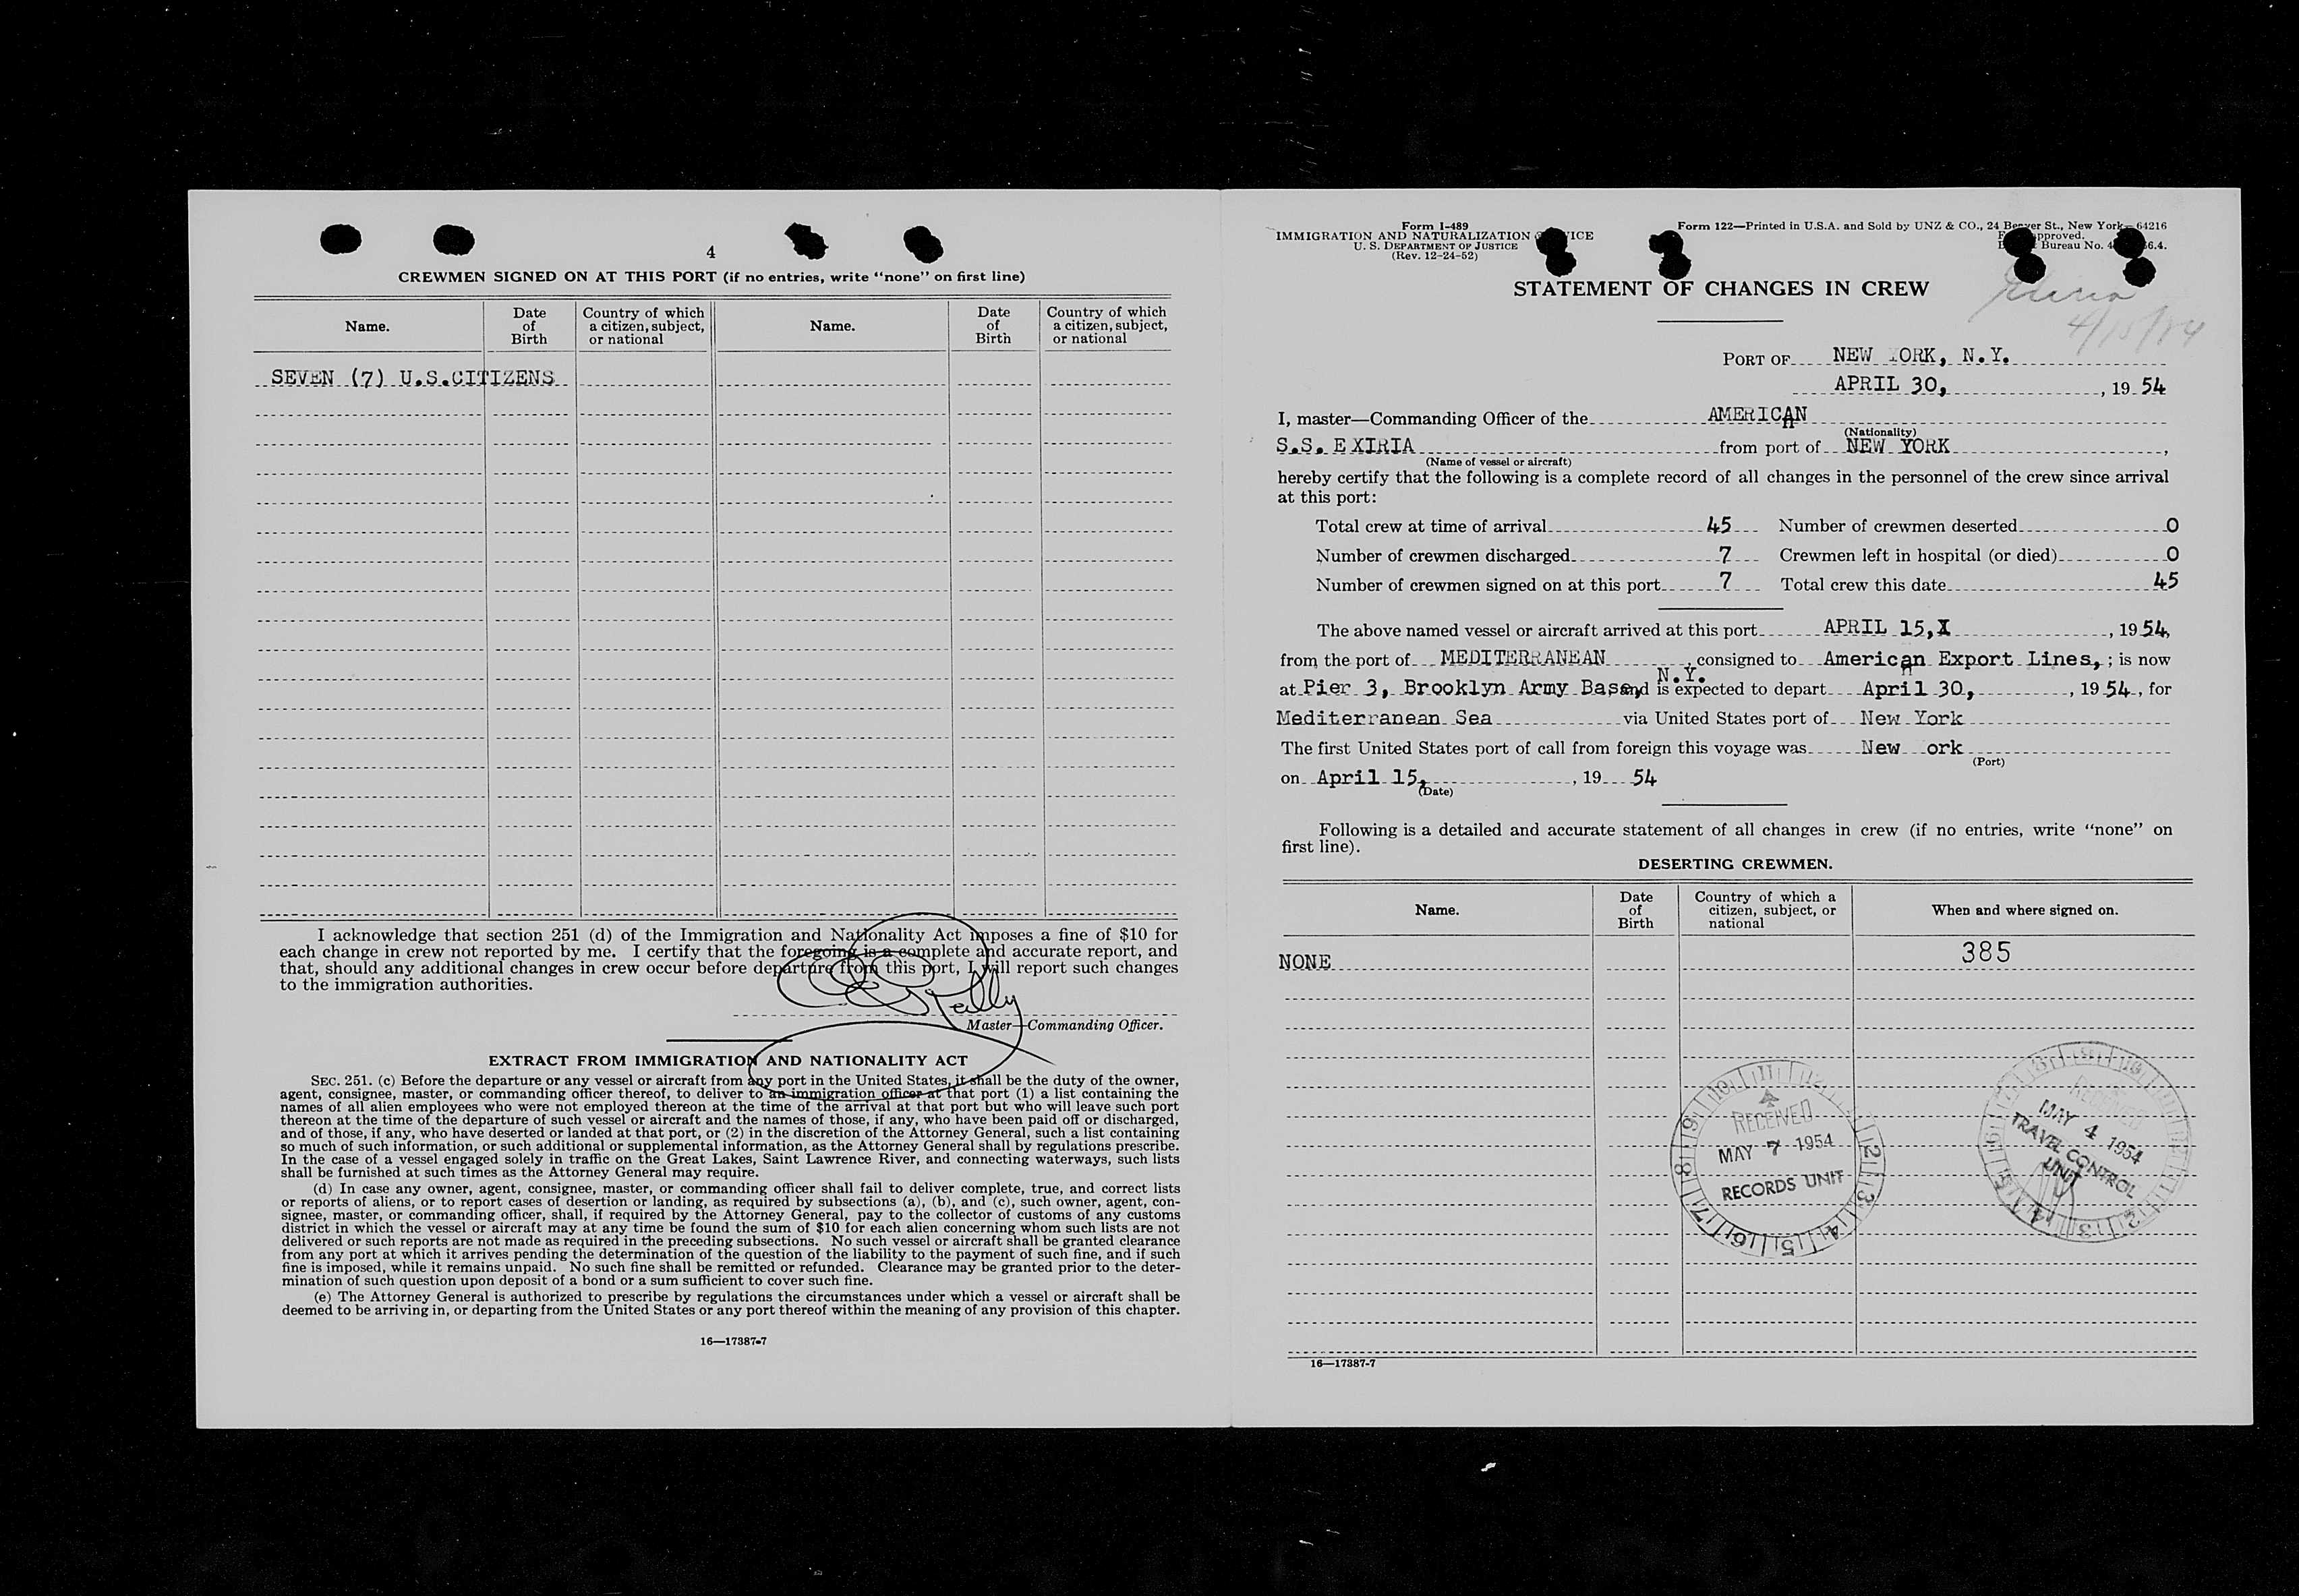 4
CREWMEN SIGNED ON AT THIS PORT (if no entries, write “none” on first line)
Name. Date of Birth Country of which a citizen, subject, or national Name. Date of Birth Country of which a citizen, subject, or national
SEVEN (7) U.S.CITIZENS
I acknowledge that section 251 (d) of the Immigration and Nationality Act imposes a fine of $10 for
each change in crew not reported by me. I certify that the foregoing is a complete and accurate report, and
that, should any additional changes in crew occur before departure from this port, I will report such changes
to the immigration authorities.
Master—Commanding Officer.
EXTRACT FROM IMMIGRATION AND NATIONALITY ACT
SEC. 251. (c) Before the departure or any vessel or aircraft from any port in the United States, it shall be the duty of the owner,
agent, consignee, master, or commanding officer thereof, to deliver to an immigration officer at that port (1) a list containing the
names of all alien employees who were not employed thereon at the time of the arrival at that port but who will leave such port
thereon at the time of the departure of such vessel or aircraft and the names of those, if any, who have been paid off or discharged,
and of those, if any, who have deserted or landed at that port, or (2) in the discretion of the Attorney General, such a list containing
so much of such information, or such additional or supplemental information, as the Attorney General shall by regulations prescribe.
In the case of a vessel engaged solely in traffic on the Great Lakes, Saint Lawrence River, and connecting waterways, such lists
shall be furnished at such times as the Attorney General may require.
(d) In case any owner, agent, consignee, master, or commanding officer shall fail to deliver complete, true, and correct lists
or reports of aliens, or to report cases of desertion or landing, as required by subsections (a), (b), and (c), such owner, agent, con-
signee, master, or commanding officer, shall, if required by the Attorney General, pay to the collector of customs of any customs
district in which the vessel or aircraft may at any time be found the sum of $10 for each alien concerning whom such lists are not
delivered or such reports are not made as required in the preceding subsections. No such vessel or aircraft shall be granted clearance
from any port at which it arrives pending the determination of the question of the liability to the payment of such fine, and if such
fine is imposed, while it remains unpaid. No such fine shall be remitted or refunded. Clearance may be granted prior to the deter-
mination of such question upon deposit of a bond or a sum sufficient to cover such fine.
(e) The Attorney General is authorized to prescribe by regulations the circumstances under which a vessel or aircraft shall be
deemed to be arriving in, or departing from the United States or any port thereof within the meaning of any provision of this chapter.
16—17387-7
Form I-489
IMMIGRATION AND NATURALIZATION
U. S. DEPARTMENT OF JUSTICE
(Rev. 12-24-52)
Form 122—Printed in U.S.A. and Sold by UNZ & CO., 24 Beaver St., New York—64216
Bureau No.
STATEMENT OF CHANGES IN CREW
PORT OF NEW ORK, N.Y.
APRIL 30, , 19 54
I, master—Commanding Officer of the AMERICAN
(Nationality)
S.S. EXIRIA from port of NEW YORK ,
(Name of vessel or aircraft)
hereby certify that the following is a complete record of all changes in the personnel of the crew since arrival
at this port:
Total crew at time of arrival 45 Number of crewmen deserted 0
Number of crewmen discharged 7 Crewmen left in hospital (or died) 0
Number of crewmen signed on at this port 7 Total crew this date 45
The above named vessel or aircraft arrived at this port APRIL 15,X , 19 54,
from the port of MEDITERRANEAN ; consigned to American Export Lines, ; is now
at Pier 3, Brooklyn Army Base, N.Y. and is expected to depart April 30, , 19 54 , for
Mediterranean Sea via United States port of New York
The first United States port of call from foreign this voyage was New ork
(Port)
on April 15, , 19 54
(Date)
Following is a detailed and accurate statement of all changes in crew (if no entries, write “none” on
first line).
DESERTING CREWMEN.
Name. Date of Birth Country of which a citizen, subject, or national When and where signed on.
NONE 385
RECEIVED
MAY 7 1954
RECORDS UNIT
RECEIVED
MAY 4 1954
TRAVEL CONTROL
UNIT
16—17387-7